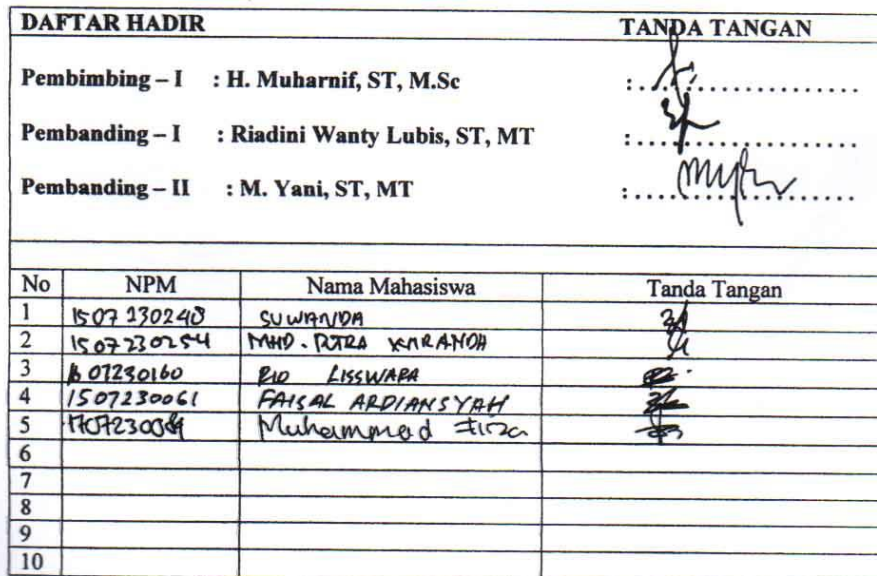 DAFTAR HADIR TANDA TANGAN
Pembimbing – I : H. Muharnif, ST, M.Sc : ....................
Pembanding – I : Riadini Wanty Lubis, ST, MT : ....................
Pembanding – II : M. Yani, ST, MT : ....................
No NPM Nama Mahasiswa Tanda Tangan
1 1507230240 SUWANDA
2 1507230254 MHD. PUTRA
3 RIO LISSWARA
4 1507230061 FAISAL ARDIANSYAH
5 Muhammad Firza
6
7
8
9
10